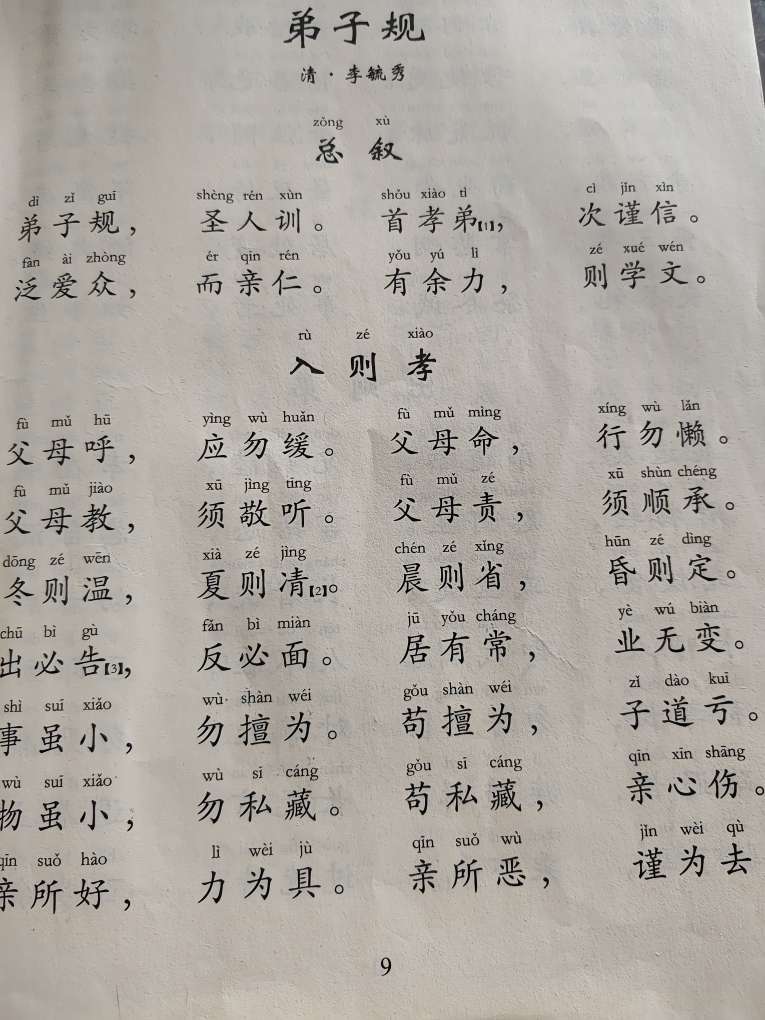 弟子规
清·李毓秀
zǒng xù
总叙
dì zǐ guī shèng rén xùn shǒu xiào tì cì jǐn xìn
弟子规，圣人训。首孝弟【1】，次谨信。
fàn ài zhòng ér qīn rén yǒu yú lì zé xué wén
泛爱众，而亲仁。有余力，则学文。
rù zé xiào
入则孝
fù mǔ hū yìng wù huǎn fù mǔ mìng xíng wù lǎn
父母呼，应勿缓。父母命，行勿懒。
fù mǔ jiào xū jìng tīng fù mǔ zé xū shùn chéng
父母教，须敬听。父母责，须顺承。
dōng zé wēn xià zé jìng chén zé xǐng hūn zé dìng
冬则温，夏则凊【2】。晨则省，昏则定。
chū bì gù fǎn bì miàn jū yǒu cháng yè wú biàn
出必告【3】，反必面。居有常，业无变。
shì suī xiǎo wù shàn wéi gǒu shàn wéi zǐ dào kuī
事虽小，勿擅为。苟擅为，子道亏。
wù suī xiǎo wù sī cáng gǒu sī cáng qīn xīn shāng
物虽小，勿私藏。苟私藏，亲心伤。
qīn suǒ hào lì wèi jù qīn suǒ wù jǐn wèi qù
亲所好，力为具。亲所恶，谨为去
9